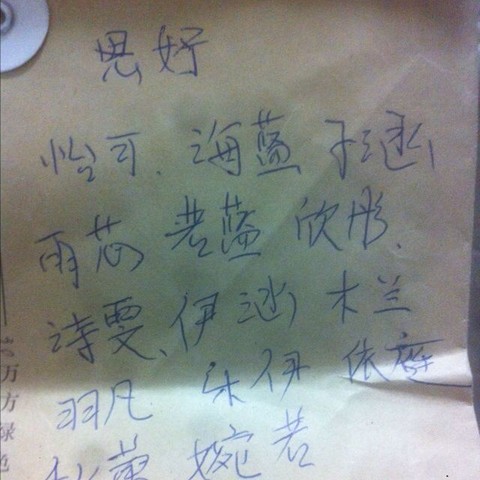 思妤
怡可、海蓝 子涵
雨芯 若蓝 欣彤、
诗雯、伊涵 木兰
羽凡 朵伊 依庭
婉若
万方绿色